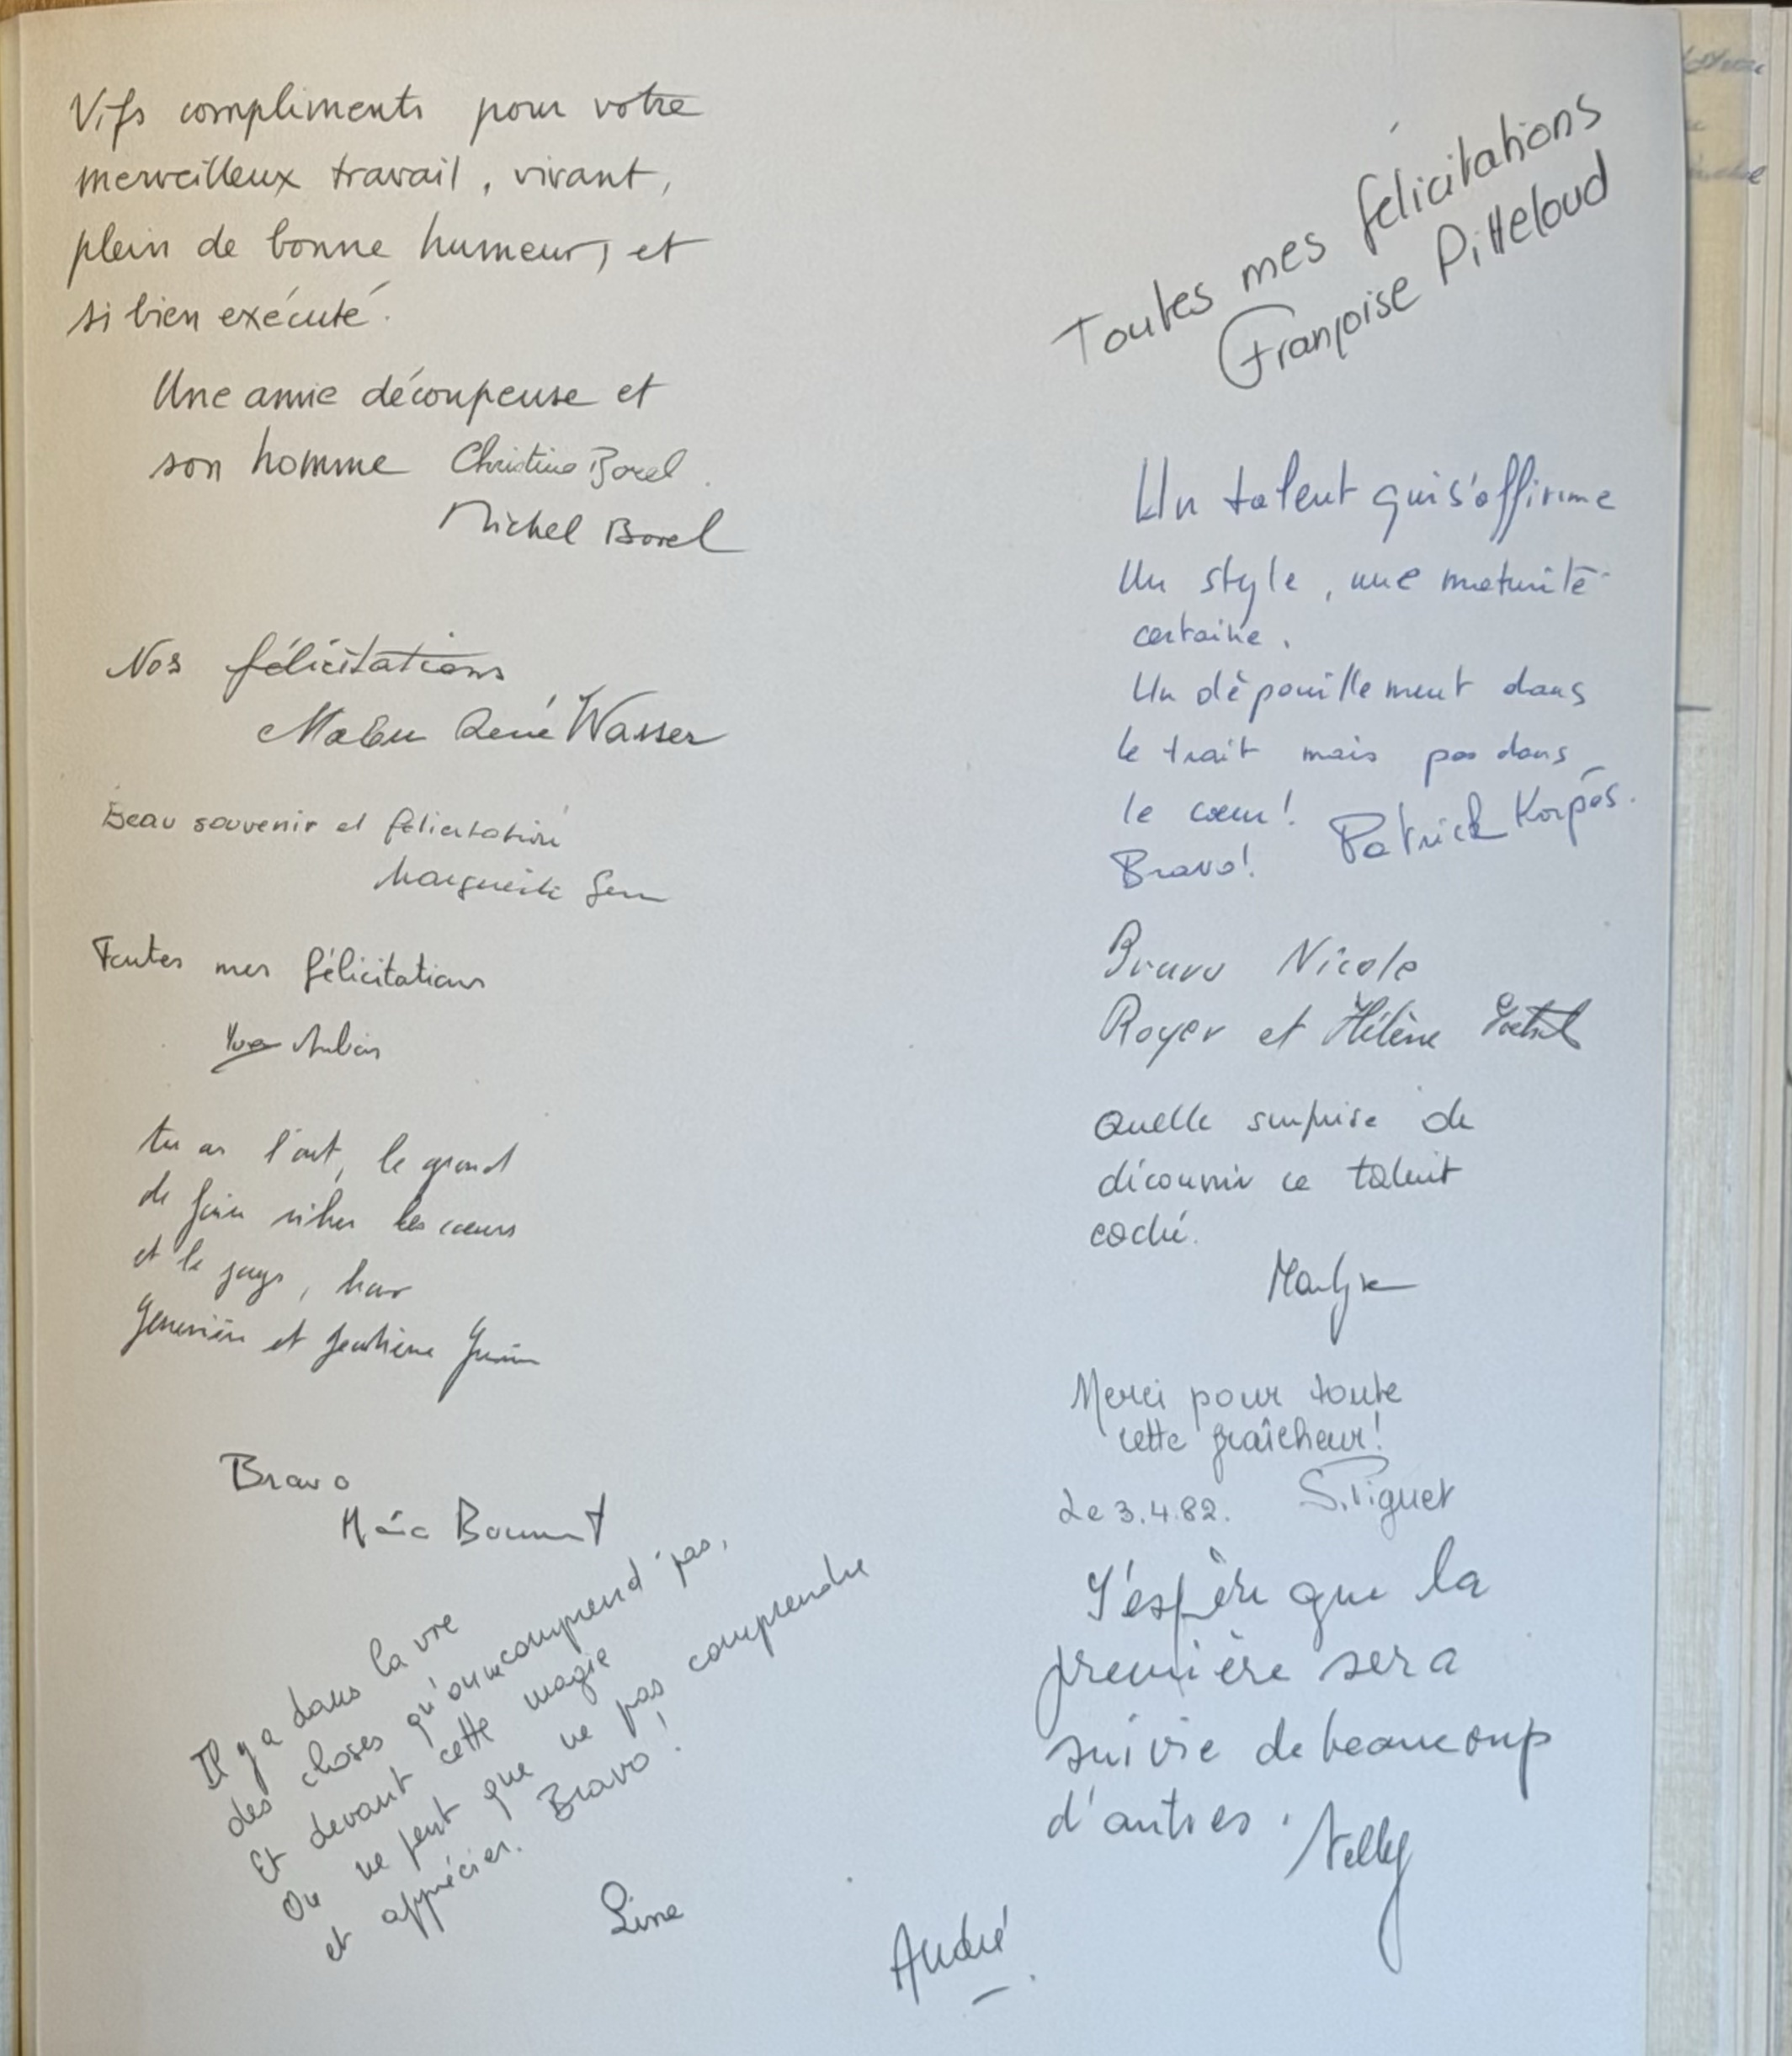 Vifs compliments pour votre
merveilleux travail, vivant,
plein de bonne humeur, et
si bien exécuté.
Une amie découpeuse et
son homme Christine Borel.
Michel Borel
Nos félicitations
René Wasser
Beau souvenir et félicitation
Marguerite
Toutes mes félicitations
Yves
tu as l'art, le grand
de faire vibrer les cœurs
et le pays,
Geneviève et
Bravo
Il y a dans la vie
des choses qu'on ne comprend pas,
Et devant cette magie
On ne peut que ne pas comprendre
et apprécier. Bravo !
Line
André
Toutes mes félicitations
Françoise Pitteloud
Un talent qui s'affirme
Un style, une maturité
certaine.
Un dépouillement dans
le trait mais pas dans
le cœur !
Bravo! Patrick Korpès.
Bravo Nicole
Royer et Hélène
Quelle surprise de
découvrir ce talent
caché.
Merci pour toute
cette fraîcheur!
Le 3.4.82. S. Piguet
J'espère que la
première sera
suivie de beaucoup
d'autres. Nelly